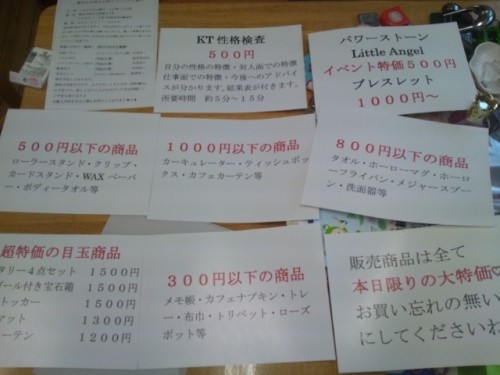 KT 性格検査
500円
自分の性格の特徴・対人面での特徴
仕事面での特徴・今後へのアドバイ
スが分かります。結果表が付きます。
所要時間　約5分～15分
パワーストーン
Little Angel
イベント特価500円
ブレスレット
1000円～
500円以下の商品
ローラースタンド・クリップ・
カードスタンド・WAX ペーパ
ー・ボディータオル等
1000円以下の商品
カーキュレーター・ティッシュボッ
クス・カフェカーテン等
800円以下の商品
タオル・ホーローマグ・ホーロ
ーフライパン・メジャースプー
ン・洗面器等
超特価の目玉商品
タリー4点セット　1500円
プール付き宝石箱　1500円
トッカー　1500円
マット　1300円
ーテン　1200円
300円以下の商品
メモ帳・カフェナプキン・トレ
ー・布巾・トリベット・ローズ
ポット等
販売商品は全て
本日限りの大特価♡
お買い忘れの無い
にしてくださいね